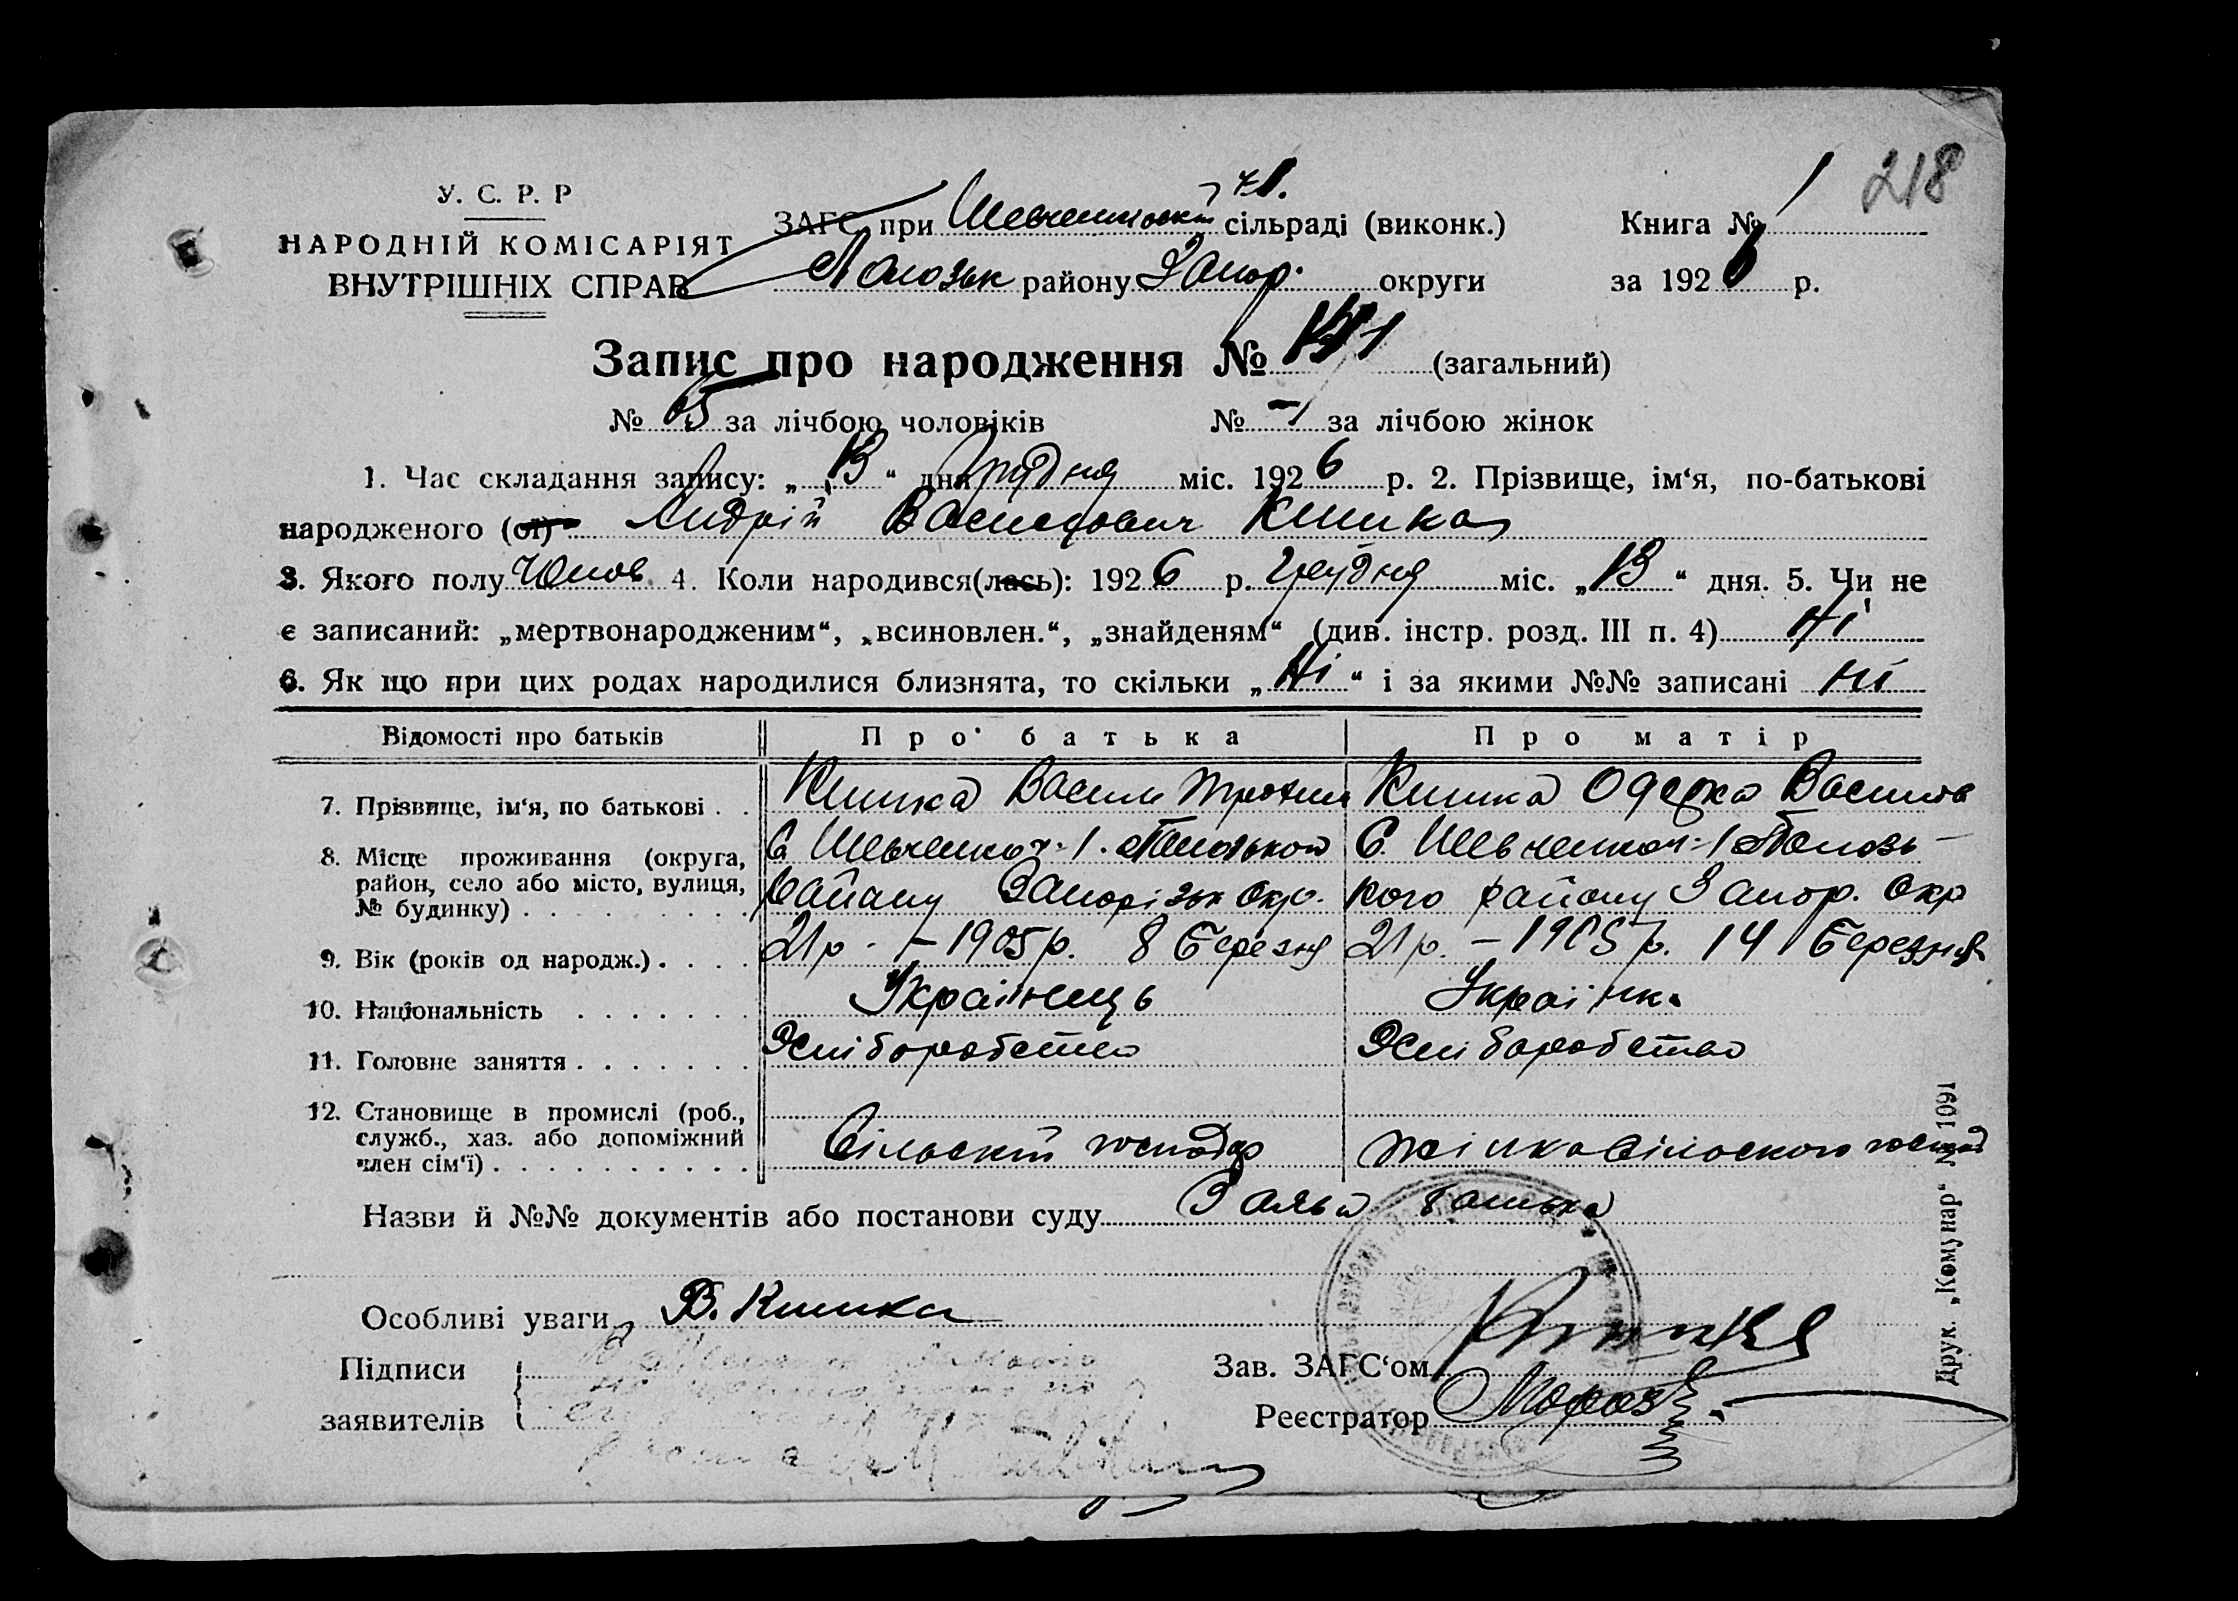 218
У. С. Р. Р
НАРОДНІЙ КОМІСАРІЯТ
ВНУТРІШНІХ СПРАВ
ЗАГС при Шевченківскій ч1. сільраді (виконк.)
Полозьк району Запор. округи
Книга № 1
за 1926 р.
Запис про народження № (загальний)
№ 65 за лічбою чоловіків № – за лічбою жінок
1. Час складання запису: „13“ дня Грудня міс. 1926 р. 2. Прізвище, ім‘я, по-батькові
народженого (ої) Андрій Васильович Кишка
3. Якого полу Чолов. 4. Коли народився(лась): 1926 р. Грудня міс. „13“ дня. 5. Чи не
є записаний: „мертвонародженим“, „всиновлен.“, „знайденям“ (див. інстр. розд. III п. 4) Ні
6. Як що при цих родах народилися близнята, то скільки „Ні“ і за якими №№ записані ні
Відомості про батьків Про батька Про матір
7. Прізвище, ім‘я, по батькові . . Кишка Василь Кишка Васильов
8. Місце проживання (округа, район, село або місто, вулиця, № будинку) . . .
С Шевченково-1. Полозького
Району Запорізьк Окр.
С Шевченково-1 Полозь-
кого району Запор. Окр
9. Вік (років од народж.) . . . . 21 р. – 1905 р. 8 Березня 21 р. – 1905 р. 14 Березня
10. Національність . . . . . . . Українець Українка
11. Головне заняття . . . . . . . Хліборобство Хліборобство
12. Становище в промислі (роб., служб., хаз. або допоміжний член сім‘ї) . . . . . . . . . .
Сільскій господар жінка сільского господ
Назви й №№ документів або постанови суду Заява батька
Особливі уваги В. Кишка
Підписи
заявителів
Зав. ЗАГС‘ом Кишка
Реєстратор Мороз
Друк. „Комунар“ № 1091